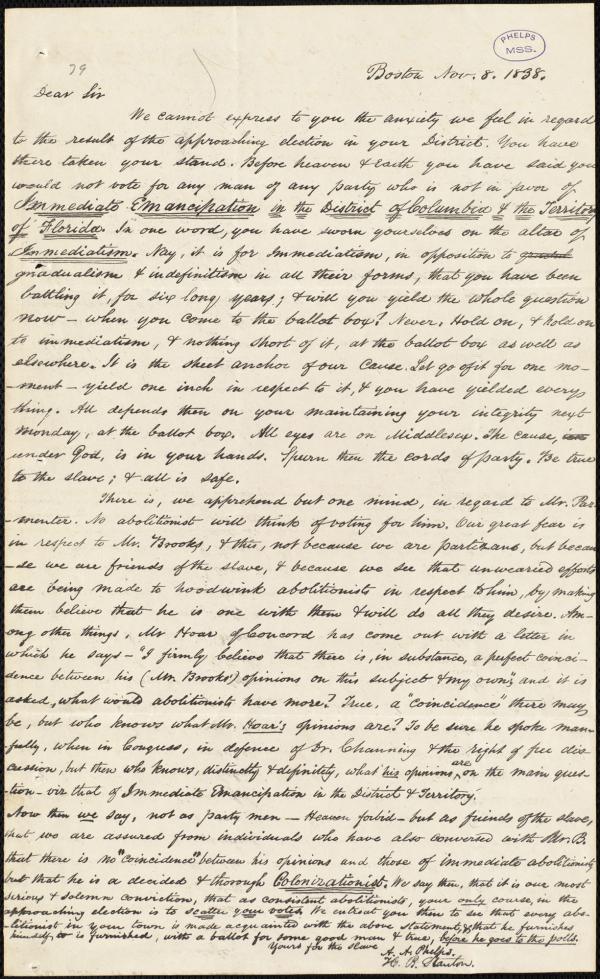 PHELPS
MSS.
79
Boston Nov. 8. 1838.
Dear Sir
We cannot express to you the anxiety we feel in regard
to the result of the approaching election in your District. You have
there taken your stand. Before heaven & earth you have said you
would not vote for any man of any party who is not in favor of
Immediate Emancipation in the District of Columbia & the Territory
of Florida. In one word, you have sworn yourselves on the altar of
Immediatism. Nay, it is for Immediatism, in opposition to
gradualism & indefinitism in all their forms, that you have been
battling it, for six long years; & will you yield the whole question
now – when you come to the ballot box? Never. Hold on, & hold on
to immediatism, & nothing short of it, at the ballot box as well as
elsewhere. It is the sheet anchor of our cause. Let go of it for one mo-
-ment – yield one inch in respect to it, & you have yielded every
thing. All depends then on your maintaining your integrity next
Monday, at the ballot box. All eyes are on Middlesex. The cause,
under God, is in your hands. Spurn then the cords of party. Be true
to the slave; & all is safe.
There is, we apprehend but one mind, in regard to Mr. Par-
-menter. No abolitionist will think of voting for him. Our great fear is
in respect to Mr. Brooks, & this, not because we are partizans, but becau
-se we are friends of the slave, & because we see that unwearied efforts
are being made to hoodwink abolitionists in respect to him, by making
them believe that he is one with them & will do all they desire. Am-
ong other things, Mr Hoar of Concord has come out with a letter in
which he says – "I firmly believe that there is, in substance, a perfect coinci-
dence between his (Mr. Brooks') opinions on this subject & my own"; and it is
asked, what would abolitionists have more? True, a "coincidence" there may
be, but who knows what Mr. Hoar's opinions are? To be sure he spoke man-
fully, when in Congress, in defence of Dr. Channing & the right of free dis
cussion, but then who knows, distinctly & definitely, what his opinions are on the main ques-
tion – viz that of Immediate Emancipation in the District & Territory.
Now then we say, not as party men – Heaven forbid – but as friends of the slave,
that, we are assured from individuals who have also conversed with Mr. B.
that there is no "coincidence" between his opinions and those of immediate abolitionists,
but that he is a decided & thorough Colonizationist. We say then, that it is our most
serious & solemn conviction, that as consistent abolitionists, your only course, in the
approaching election is to scatter your votes. We entreat you then to see that every abo-
-litionist in your town is made acquainted with the above statement, & that he furnishes
himself, or is furnished, with a ballot for some good man & true, before he goes to the polls.
Yours for the slave A. A. Phelps.
H. B. Stanton.